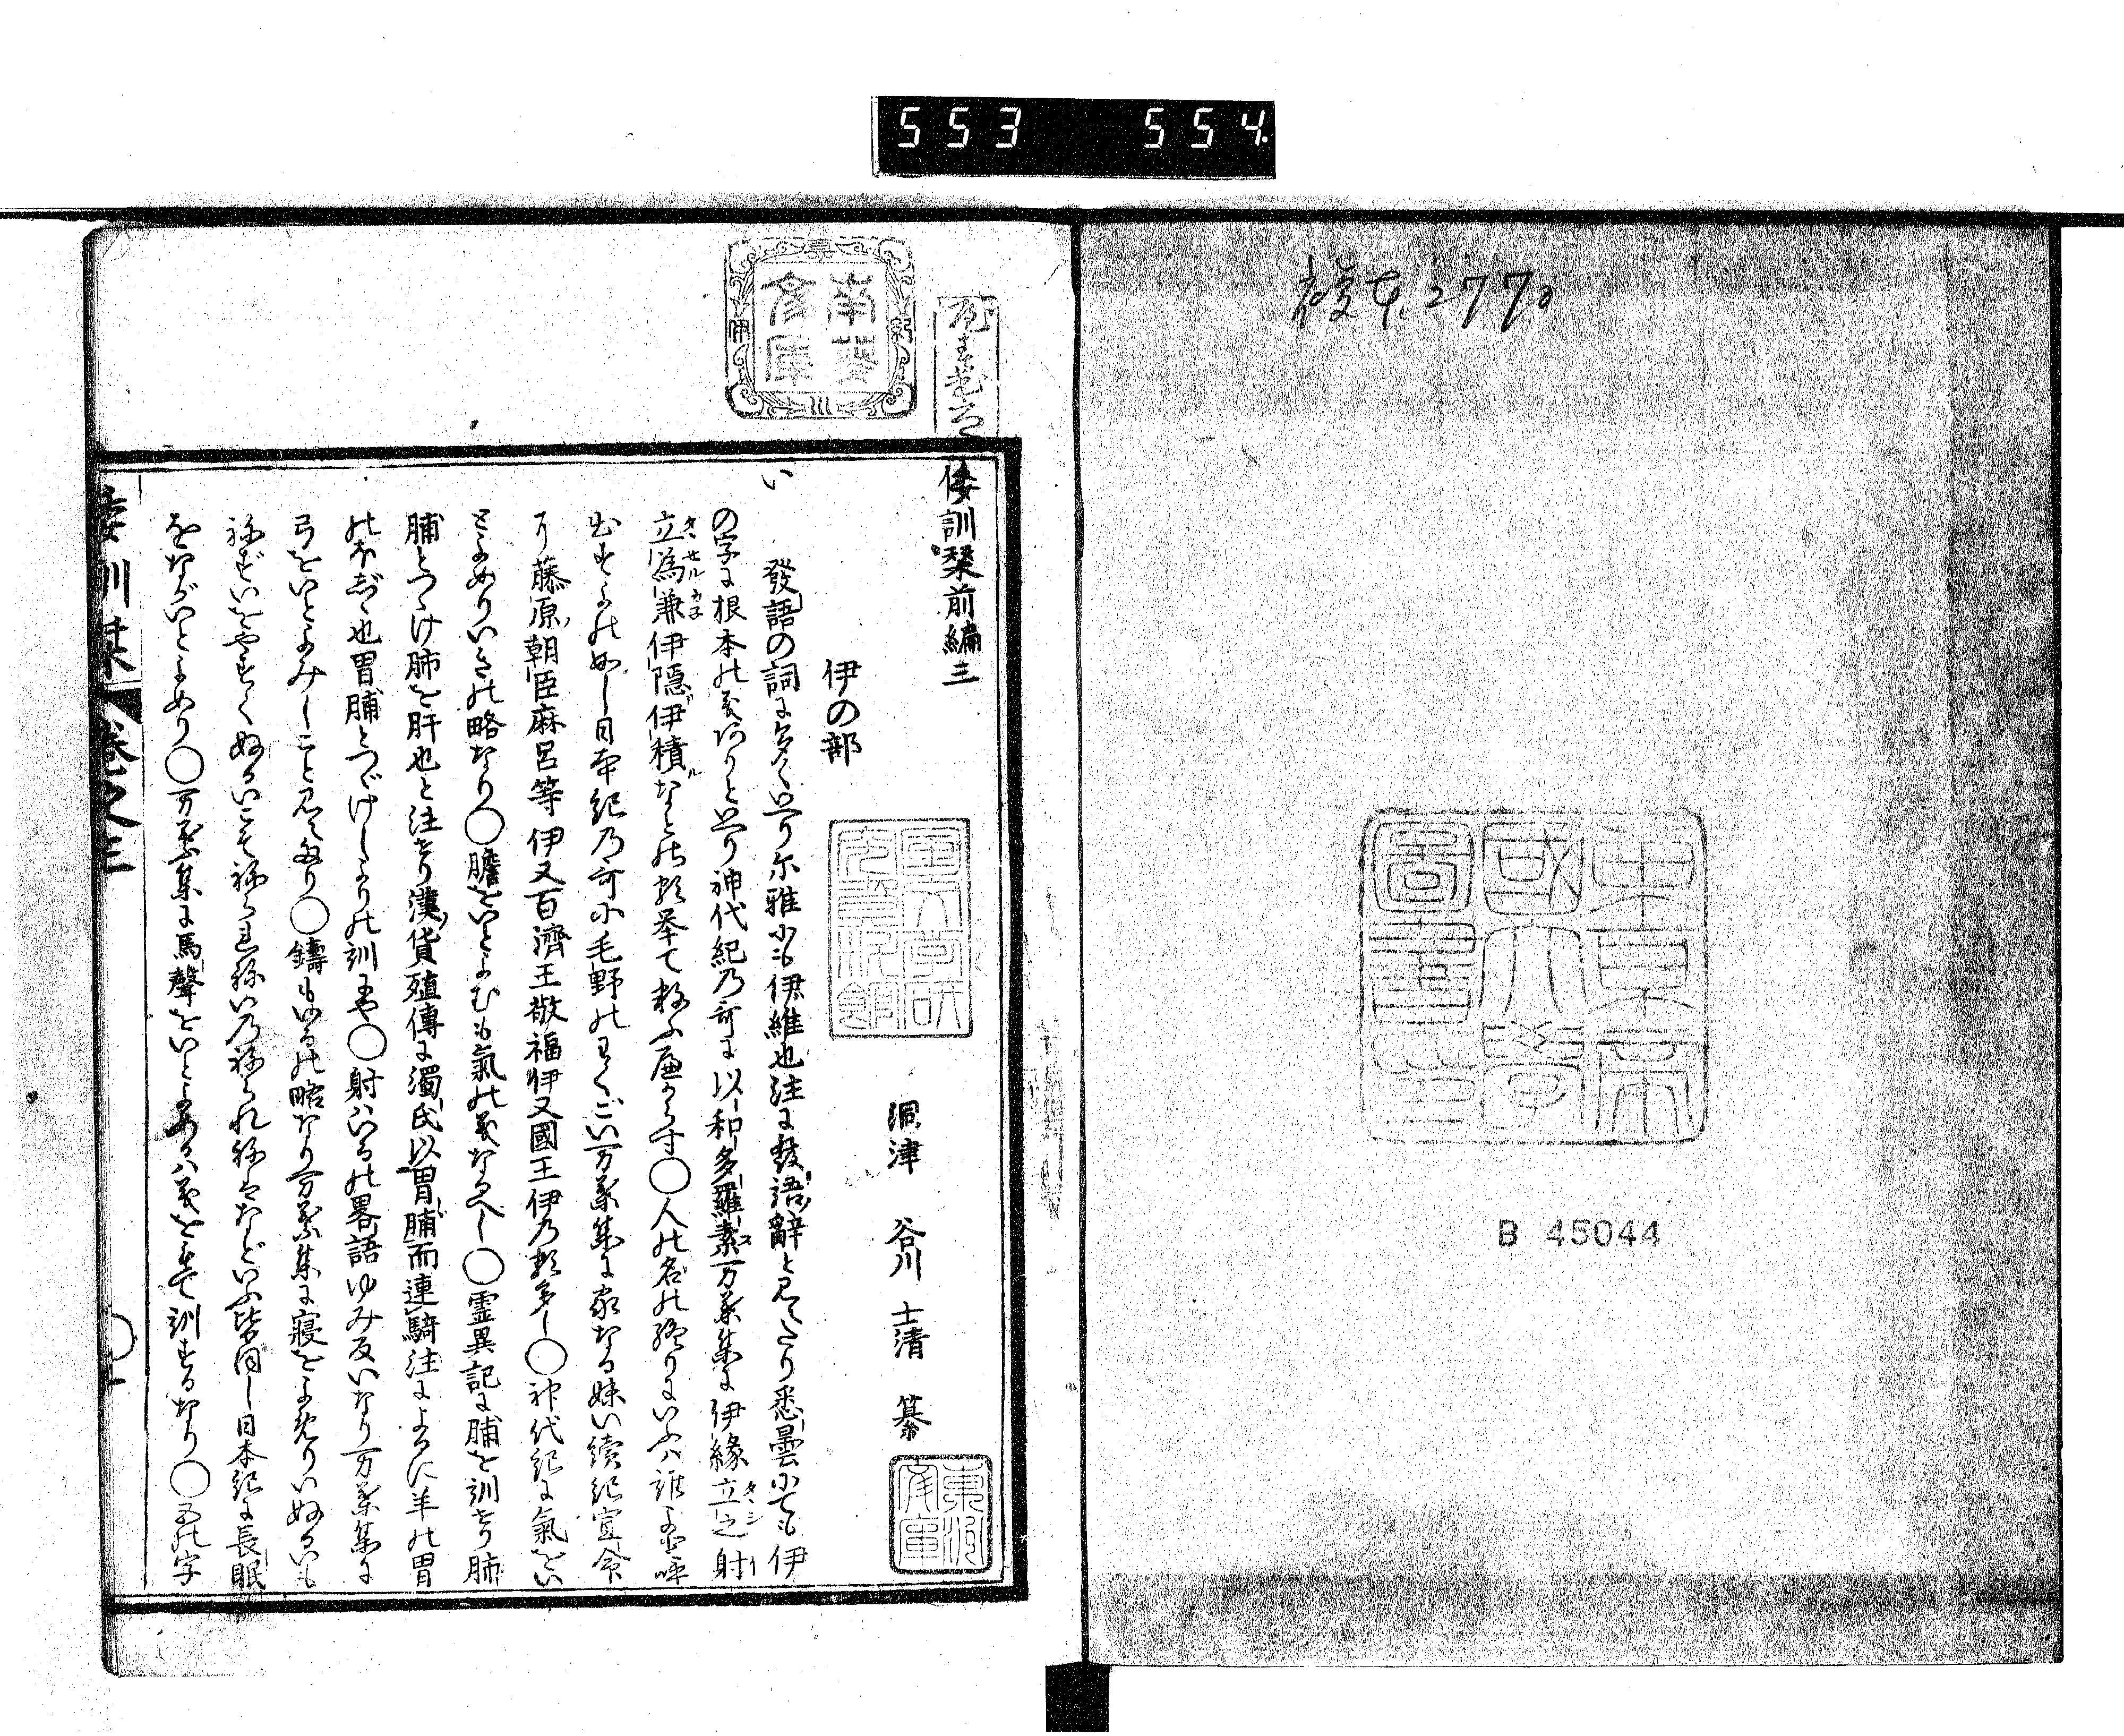 553 554.
複本 2770
東京帝國大學圖書印
B 45044
南葵文庫
倭訓栞前編三
洞津 谷川 士清 纂
伊の部
い
發語の詞に多くいへり尓雅にも伊維也注に發語辭と見えたり悉曇にても伊
の字に根本の義ありといへり神代紀乃哥に以和多羅素万葉集に伊縁立之射
立為兼伊隠伊積なとの類挙て数ふ
人の名の終りにいふハ
日本紀乃哥に毛野のわくごい万葉集に家なる妹い續紀宣命
り藤原朝臣麻呂等伊又百濟王敬福伊又國王伊乃類多し◯神代紀に氣をい
とよめりいきの略なり◯膽をいとよむも氣の義なるへし◯霊異記に脯を訓せり肺
脯とつゝけ肺を肝也と注せり漢貨殖傳に濁氏以胃脯而連騎注によるに羊の胃
のほじゝ也胃脯とつゞけしよりの訓にや◯射ハいるの畧語ゆみ反いなり万葉集に
弓をいとよみしこと見えたり◯鑄もいるの略なり万葉集に寢をよめりいぬるいも
ねずいをやすくぬるいこそねられねいのねられねはなどいふ皆同し日本紀に長眠
をながいとよめり◯万葉集に馬聲をいとよめるハ義をもて訓するなり◯五の字
倭訓栞 卷之三